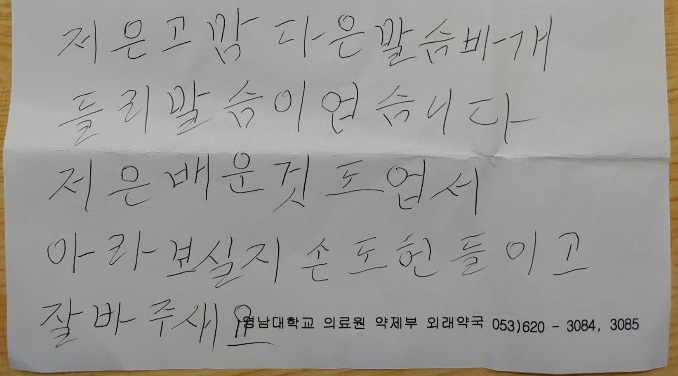 저은고맘다은말슴바개
들리말슴이업습니다
저은배운것도업서
아라보실지손도헌들이고
잘바주새요
영남대학교 의료원 약제부 외래약국 053)620 - 3084, 3085